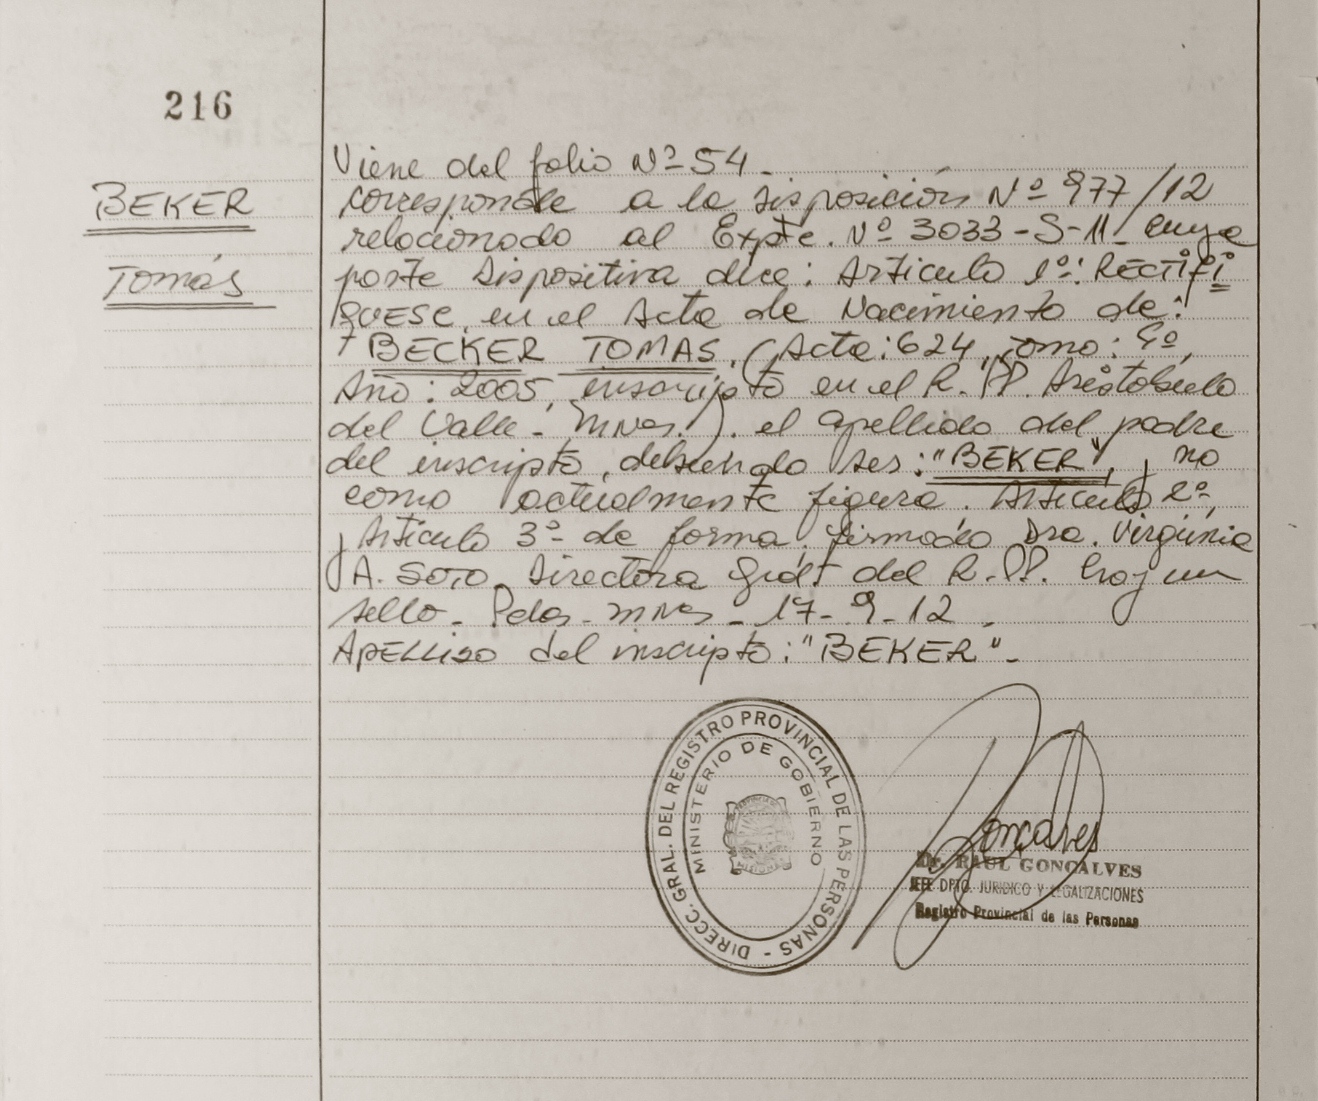 216
BEKER
Tomás
Viene del folio Nº 54 -
corresponde a la Disposición Nº 977/12
relacionado al Expte. Nº 3033-S-11- cuya
parte Dispositiva dice: Articulo 1º: RECTIFI
QUESE, en el Acta de Nacimiento de:
BECKER TOMAS, (Acta: 624, Tomo:
Año: 2005, inscripto en el R.PP. Aristobulo
del Valle - Mnes.). el apellido del padre
del inscripto, debiendo ser: "BEKER", y no
como actualmente figura. Articulo 2º,
y Articulo 3º de forma, firmado Dra. Virginia
A. SOTO. Directora Gral del R.PP. hay un
sello - Pdas - Mnes - 17-9-12 -
APELLIDO del inscripto: "BEKER" -
DIRECC. GRAL. DEL REGISTRO PROVINCIAL DE LAS PERSONAS -
MINISTERIO DE GOBIERNO
Goncalves
Dr. RAUL GONCALVES
JEFE DPTO. JURIDICO Y LEGALIZACIONES
Registro Provincial de las Personas